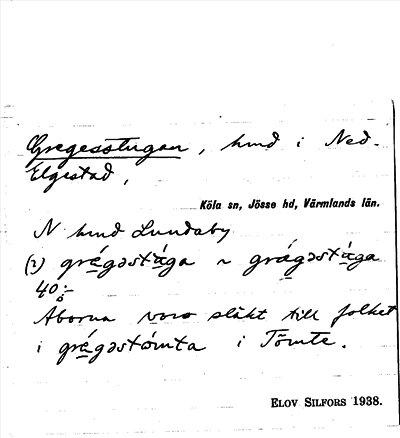 Gregesstugan, hmd i Ned.
Elgestad,
Köla sn, Jösse hd, Värmlands län.
N hmd Lundaby
(2) grégəstága ~ grágəstága
40:-
Åborna voro släkt till folket
i grégəstómta i Tömte.
ELOV SILFORS 1938.